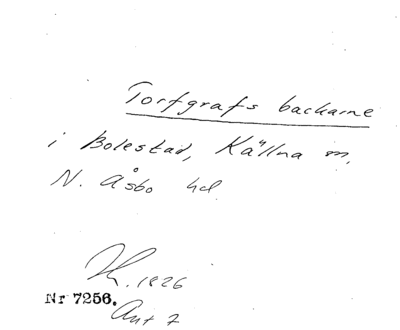 Torfgrafs backarne
i Bolestad, Källna m,
N. Åsbo hd
1826
Nr 7256.
Ant 7